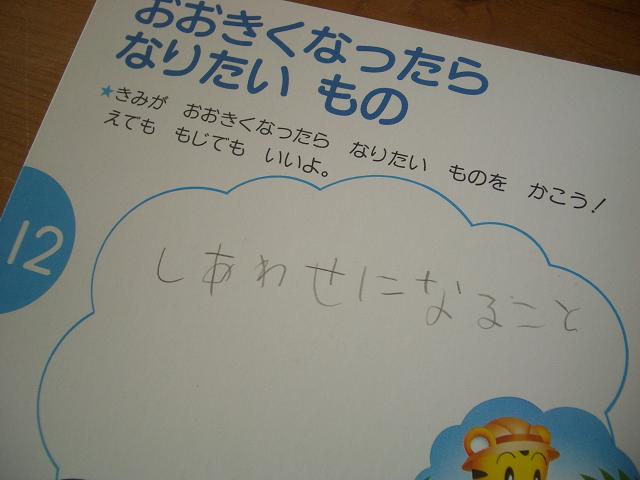 おおきくなったら
なりたい もの
★きみが おおきくなったら なりたい ものを かこう!
えでも もじでも いいよ。
12
しあわせになること